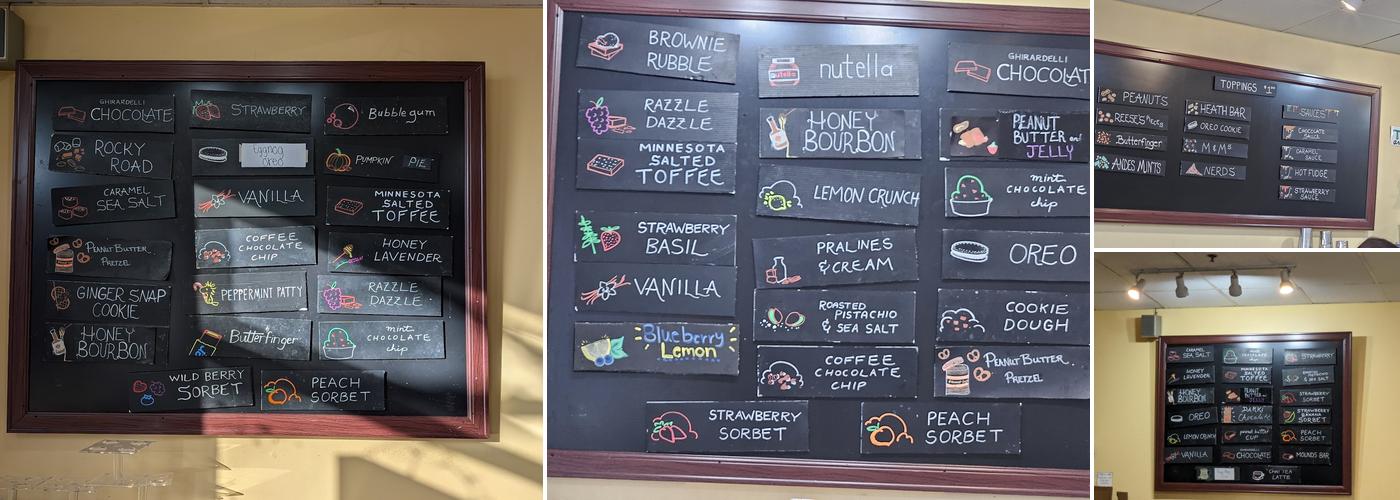 GHIRARDELLI
CHOCOLATE
ROCKY
ROAD
CARAMEL
SEA SALT
PEANUT BUTTER
PRETZEL
GINGER SNAP
COOKIE
HONEY
BOURBON
STRAWBERRY
Eggnog
oreo
VANILLA
COFFEE
CHOCOLATE
CHIP
PEPPERMINT PATTY
Butterfinger
Bubblegum
PUMPKIN PIE
MINNESOTA
SALTED
TOFFEE
HONEY
LAVENDER
RAZZLE
DAZZLE
mint
CHOCOLATE
chip
WILD BERRY
SORBET
PEACH
SORBET
BROWNIE
RUBBLE
RAZZLE
DAZZLE
MINNESOTA
SALTED
TOFFEE
STRAWBERRY
BASIL
VANILLA
Blueberry
Lemon
nutella
nutella
HONEY
BOURBON
LEMON CRUNCH
PRALINES
& CREAM
ROASTED
PISTACHIO
& SEA SALT
COFFEE
CHOCOLATE
CHIP
GHIRARDELLI
CHOCOLAT
PEANUT
BUTTER and
JELLY
mint
CHOCOLATE
chip
OREO
COOKIE
DOUGH
PEANUT BUTTER
PRETZEL
STRAWBERRY
SORBET
PEACH
SORBET
TOPPINGS
PEANUTS
REESE'S Pieces
Butterfinger
ANDES MINTS
HEATH BAR
OREO COOKIE
M & M's
NERDS
SAUCES
CHOCOLATE
SAUCE
CARAMEL
SAUCE
HOT FUDGE
STRAWBERRY
SAUCE
CARAMEL
SEA SALT
HONEY
LAVENDER
HONEY
BOURBON
OREO
LEMON CRUNCH
VANILLA
CHOCOLATE
chip
MINNESOTA
SALTED
TOFFEE
PEANUT
BUTTER and
JELLY
Chocolate
peanut butter
CUP
GHIRARDELLI
CHOCOLATE
STRAWBERRY
& SEA SALT
STRAWBERRY
SORBET
STRAWBERRY
BANANA
SORBET
PEACH
SORBET
MOUNDS BAR
CHAI TEA
LATTE